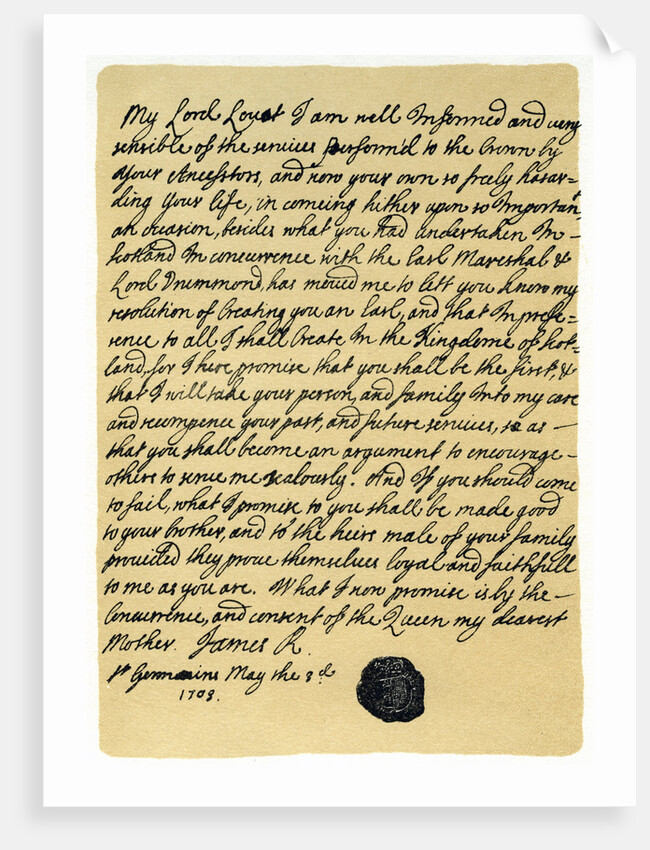 My Lord Lovat I am well Informed and very
sensible of the services Perform'd to the Crown by
Your Ancestors, and now your own so freely hasar=
ding Your life, in comeing hither upon so Important
an occasion, besides what you had undertaken In –
Scotland In concurrence with the Earl Mareshal &
Lord Drummond, has moved me to lett you know my
resolution of Creating you an Earl, and that In prefe=
rence to all I shall Create In the Kingdome of Scot=
land, for I here promise that you shall be the first, &
that I will take your person, and family Into my care
and recompence your past, and future services, so as –
that you shall become an argument to encourage –
others to serve me zealously. And If you should come
to fail, what I promise to you shall be made good
to your brother, and to the heirs male of your family
provided they prove themselves loyal and faithfull
to me as you are. What I now promise is by the –
Concurrence, and consent of the Queen my dearest
Mother. James R.
St Germains May the 3d.
1703.